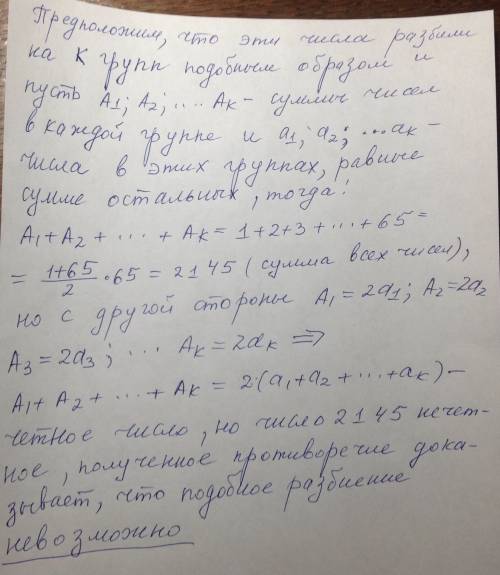 Предположим, что эти числа разбили
на К групп подобным образом и
пусть A1; A2; .... Aк - суммы чисел
в каждой группе и a1; a2; ... aк -
числа в этих группах, равные
сумме остальных, тогда:
A1 + A2 + ... + Aк = 1+2+3+...+65 =
= (1+65)/2 · 65 = 2145 (сумма всех чисел),
но с другой стороны A1 = 2a1; A2=2a2
A3 = 2a3; ... Aк = 2aк =>
A1 + A2 + ... + Aк = 2(a1+a2+...+aк) -
четное число, но число 2145 нечет-
ное, полученное противоречие дока-
зывает, что подобное разбиение
невозможно